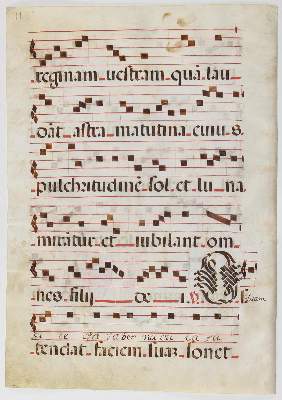 reginam uestram quã lau
dãt astra matutina cuius
pulchritudinẽ sol et luna
mirãtur et iubilant om
nes filij dei. V. O
tendat faciem suaz sonet